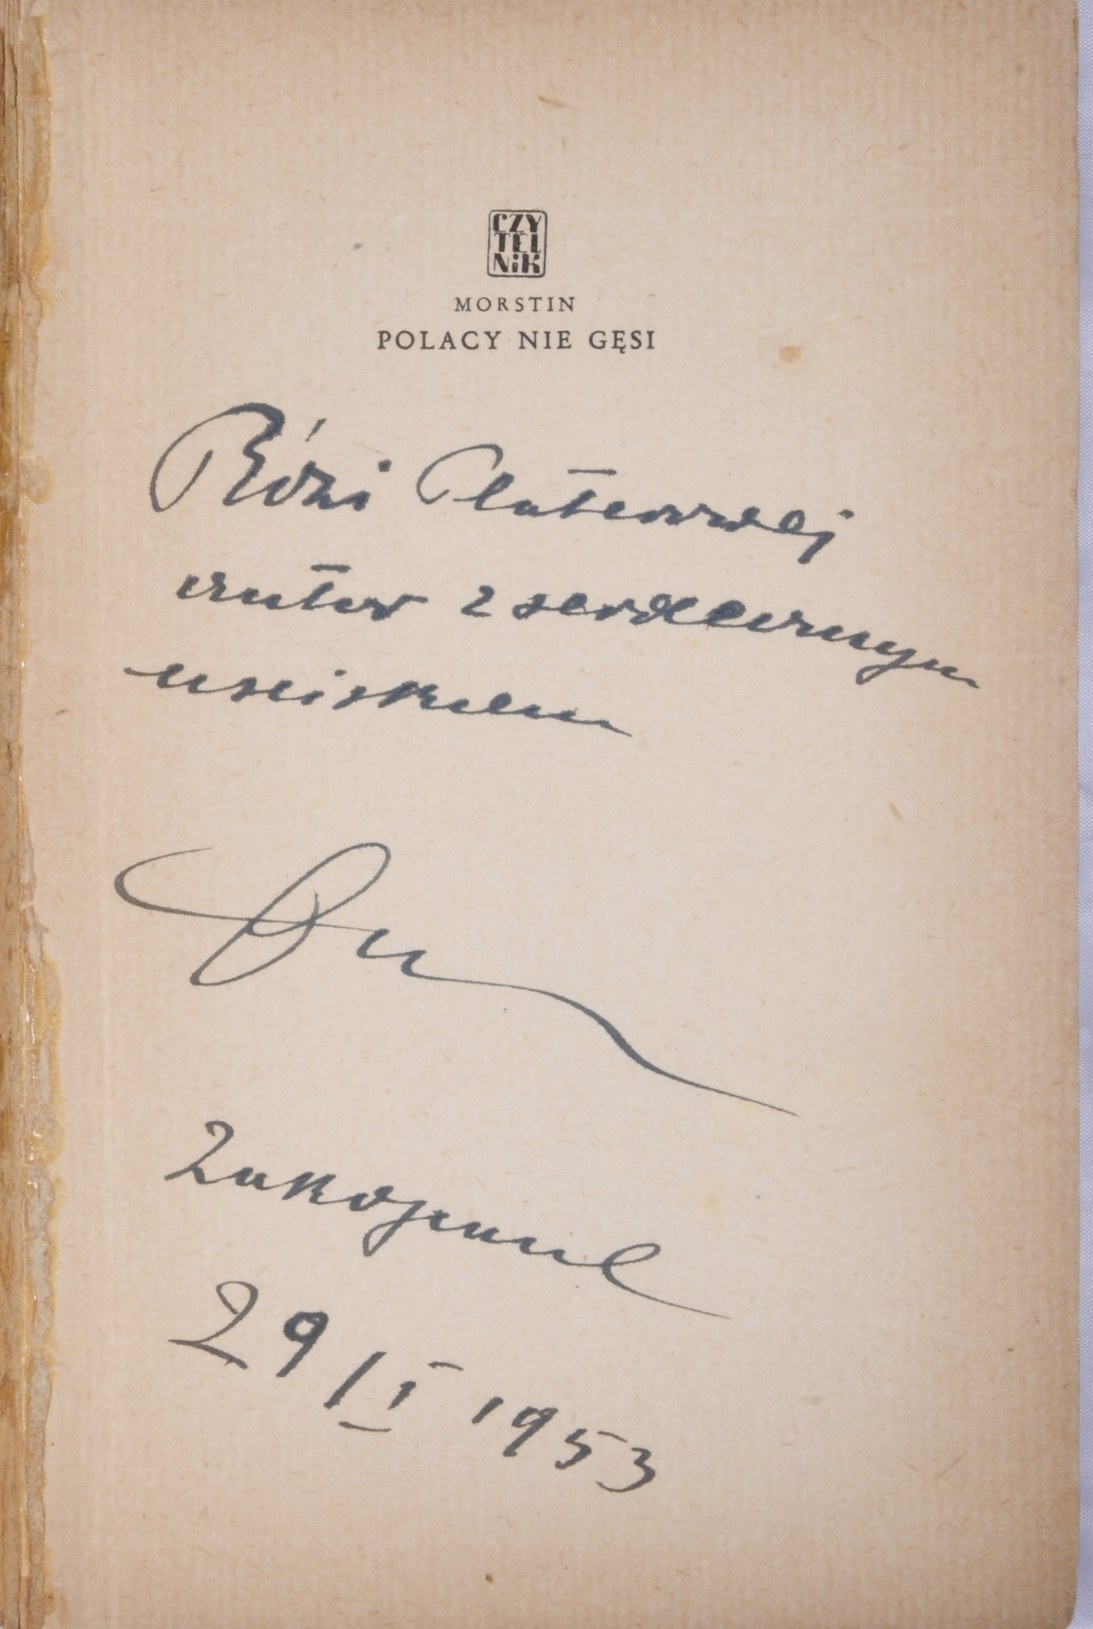 CZY
TEL
NiK
MORSTIN
POLACY NIE GĘSI
Rózi Platerowej
autor z serdecznym
usciskem
Zakopane
29/I 1953